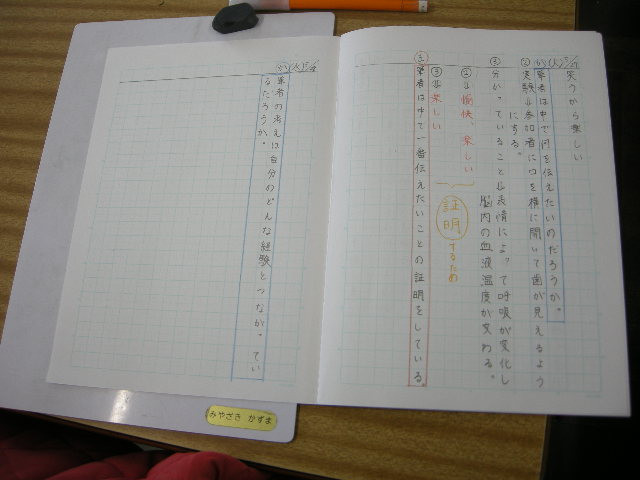 笑うから楽しい
(火)
筆者は中で何を伝えたいのだろうか。
② 実験↓参加者に口を横に開いて歯が見えるよう
にする。
③ 分かっていること↓表情によって呼吸が変化し
脳内の血液温度が変わる。
②↓愉快、楽しい
③↓楽しい
証明するため
筆者は中で一番伝えたいことの証明をしている。
(火)
筆者の考えは自分のどんな経験とつながってい
るだろうか。
みやざき かずま